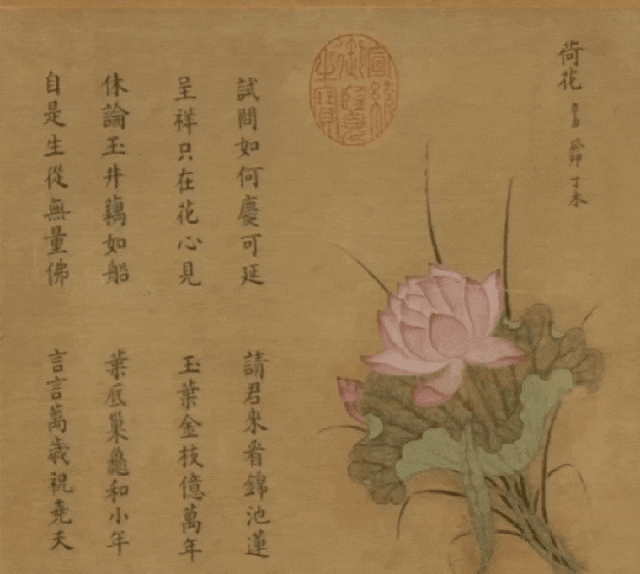 荷花
宣統御覽之寶
試問如何慶可延 請君來看錦池蓮
呈祥只在花心見 玉葉金枝億萬年
休論玉井藕如船 葉底巢龜和小年
自是生從無量佛 言言萬歲祝堯天